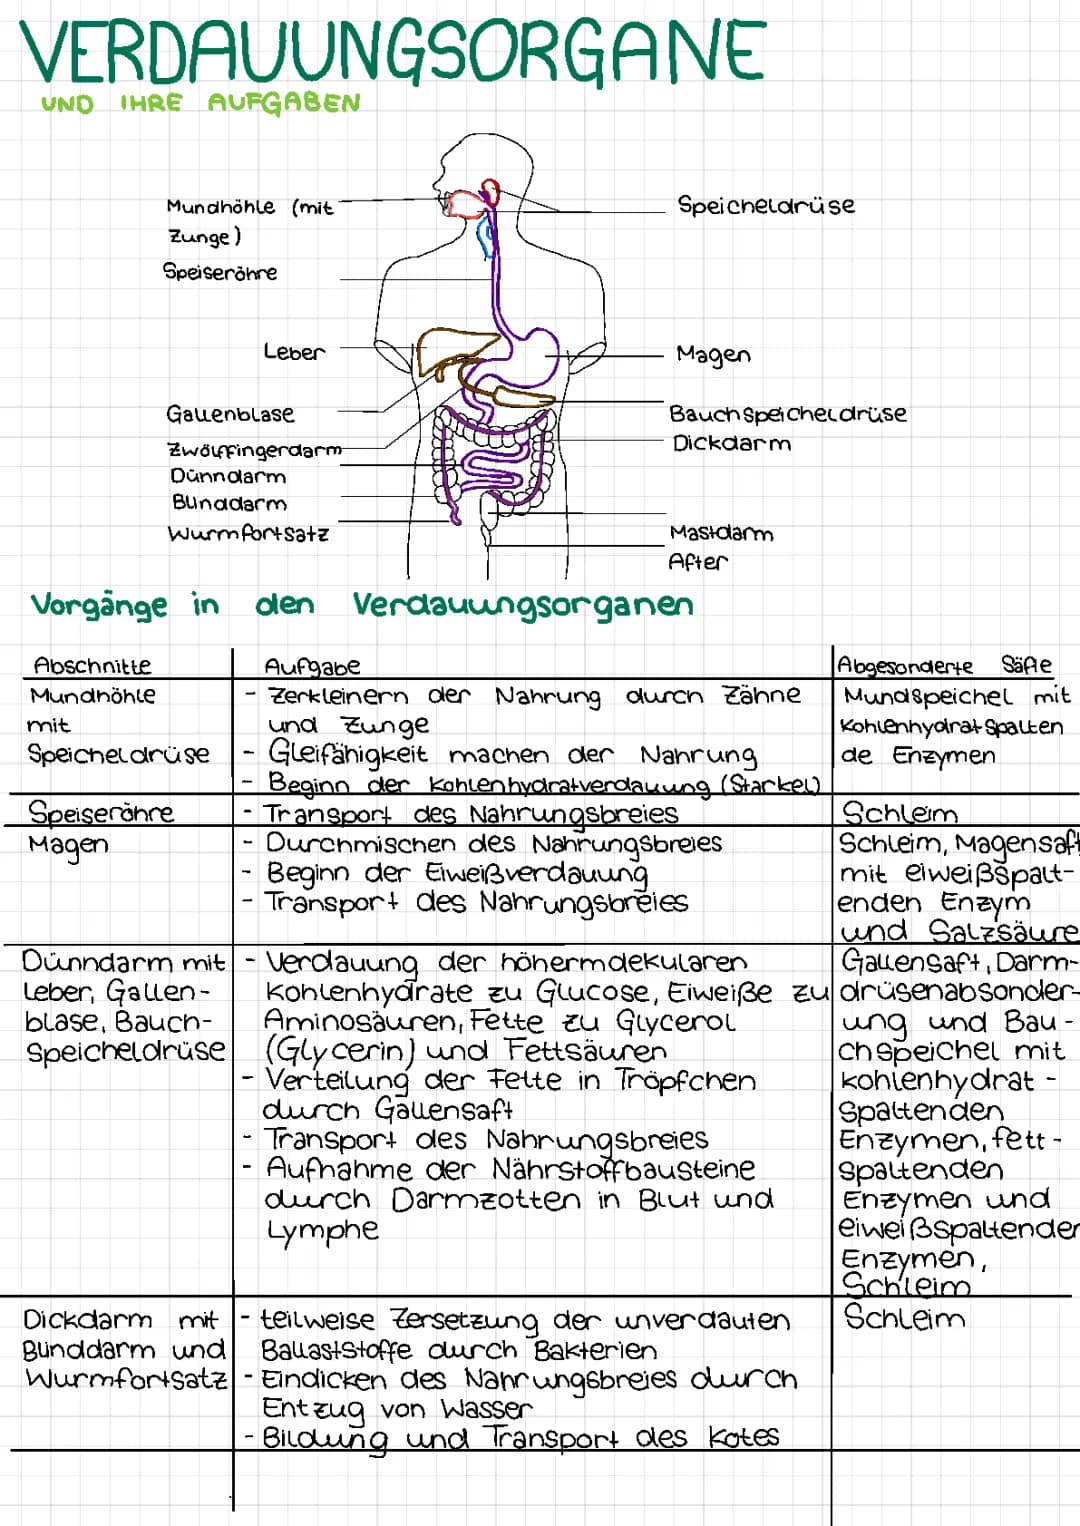 VERDAUUNGSORGANE
UND IHRE AUFGABEN
Mundhöhle (mit
Zunge)
Speiseröhre
Leber
Gallenblase
Zwölffingerdarm
Dünndarm
Blinddarm
Wurmfortsatz
Speicheldrüse
Magen
Bauchspeicheldrüse
Dickdarm
Mastdarm
After
Vorgänge in den Verdauungsorganen
Abschnitte
Aufgabe
Abgesonderte Säfte
Mundhöhle
mit
Speicheldrüse
- Zerkleinern der Nahrung durch Zähne
und Zunge
- Gleifähigkeit machen der Nahrung
- Beginn der Kohlenhydratverdauung (Stärke)
Mundspeichel mit
Kohlenhydratspalten
de Enzymen
Speiseröhre
- Transport des Nahrungsbreies
Schleim
Magen
- Durchmischen des Nahrungsbreies
- Beginn der Eiweißverdauung
- Transport des Nahrungsbreies
Schleim, Magensaft
mit eiweißspalt-
enden Enzym
und Salzsäure
Dünndarm mit
Leber, Gallen-
blase, Bauch-
Speicheldrüse
- Verdauung der höhermdekularen
Kohlenhydrate zu Glucose, Eiweiße zu
Aminosäuren, Fette zu Glycerol
(Glycerin) und Fettsäuren
- Verteilung der Fette in Tröpfchen
durch Gallensaft
- Transport des Nahrungsbreies
- Aufnahme der Nährstoffbausteine
durch Darmzotten in Blut und
Lymphe
Gallensaft, Darm-
drüsenabsonder-
ung und Bau-
chspeichel mit
kohlenhydrat-
spaltenden
Enzymen, fett-
spaltenden
Enzymen und
eiweißspaltender
Enzymen,
Schleim
Dickdarm mit
Blinddarm und
Wurmfortsatz
- teilweise Zersetzung der unverdauten
Ballaststoffe durch Bakterien
- Eindicken des Nahrungsbreies durch
Entzug von Wasser
- Bildung und Transport des Kotes
Schleim